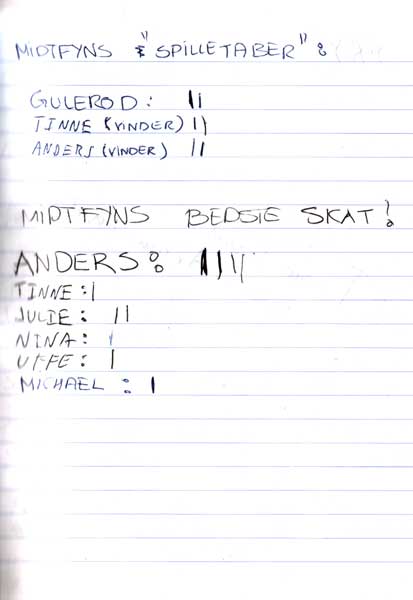 MIDTFYNS "SPILLETABER":
GULEROD: ||
TINNE (VINDER) ||
ANDERS (VINDER) ||
MIDTFYNS BEDSTE SKAT!
ANDERS: ||||
TINNE: |
JULIE: ||
NINA: |
UFFE: |
MICHAEL: |